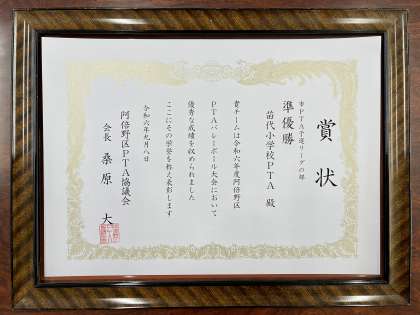 賞状
市PTA予選リーグの部
準優勝
苗代小学校PTA 殿
貴チームは令和六年度阿倍野区
PTAバレーボール大会において
優秀な成績を収められました
ここにその栄誉を称え表彰します
令和六年九月八日
阿倍野区PTA協議会
会長 桑原 大